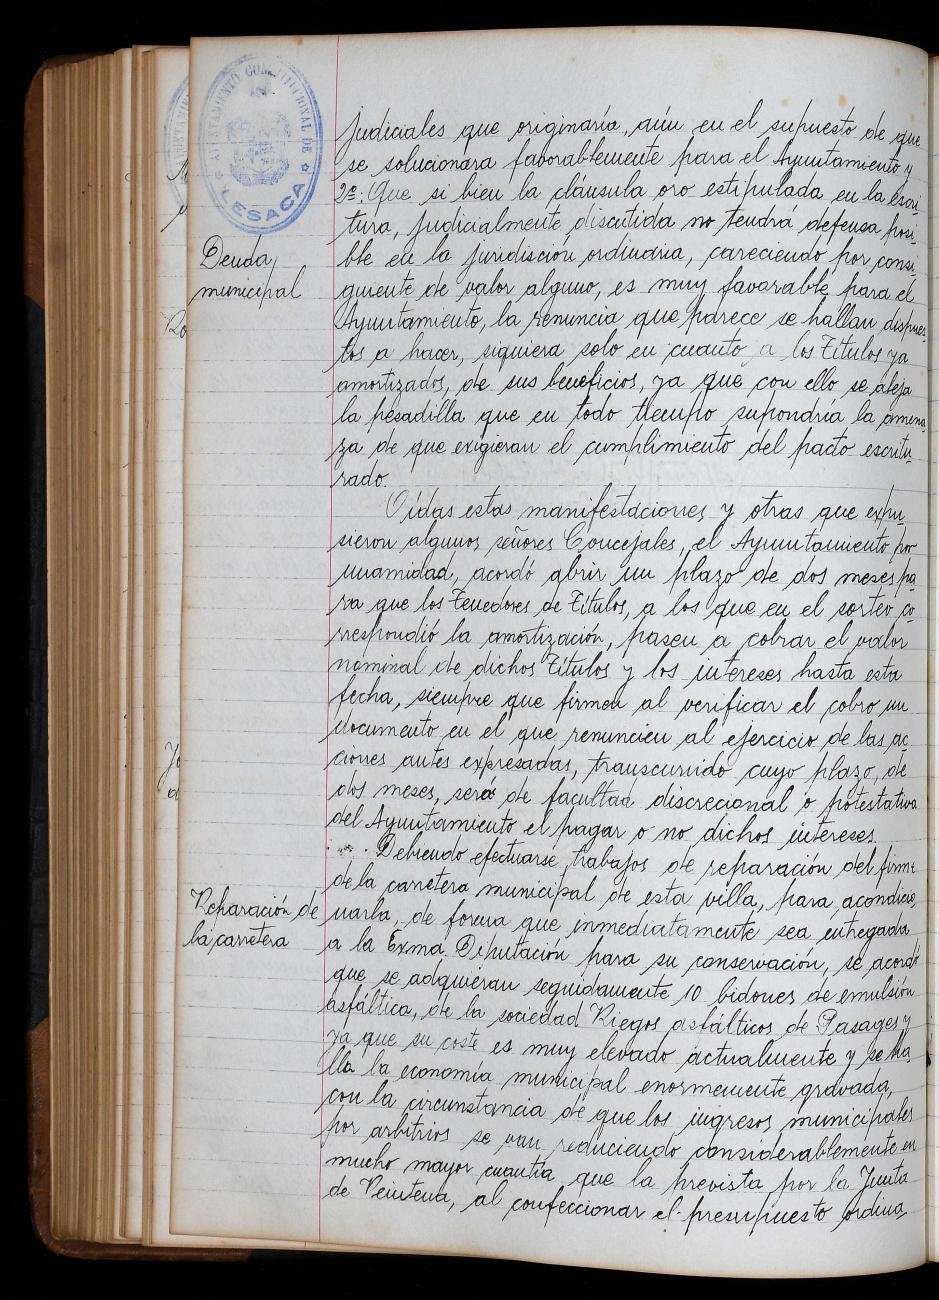 AYUNTAMIENTO CONSTITUCIONAL DE
LESACA
Deuda
municipal
judiciales que originaría, aún en el supuesto de que
se solucionara favorablemente para el Ayuntamiento y
2º: Que si bien la cláusula oro estipulada en la escri-
tura, judicialmente discutida no tendrá defensa posi-
ble en la jurisdición ordinaria, careciendo por consi-
guiente de valor alguno, es muy favorable para el
Ayuntamiento, la renuncia que parece se hallan dispues-
tos a hacer, siquiera solo en cuanto a los Titulos ya
amortizados, de sus beneficios, ya que con ello se aleja
la pesadilla que en todo tiempo supondría la amena-
za de que exigieran el cumplimiento del pacto escritu-
rado.
Oídas estas manifestaciones y otras que expu-
sieron algunos señores Concejales, el Ayuntamiento por
unamidad, acordó abrir un plazo de dos meses pa-
ra que los Tenedores de Titulos, a los que en el sorteo co-
rrespondió la amortización, pasen a cobrar el valor
nominal de dichos Titulos y los intereses hasta esta
fecha, siempre que firmen al verificar el cobro un
documento en el que renuncien al ejercicio de las ac-
ciones antes expresadas, transcurrido cuyo plazo, de
dos meses, será de facultad discrecional o potestativa
del Ayuntamiento el pagar o no dichos intereses.
Reparación de
la carretera
Debiendo efectuarse trabajos de reparación del firme
de la carretera municipal de esta villa, para acondicio-
narla, de forma que inmediatamente sea entregada
a la Exma. Diputación para su conservación, se acordó
que se adquieran seguidamente 10 bidones de emulsión
asfáltica, de la sociedad Riegos asfálticos de Pasages y
ya que su coste es muy elevado actualmente y se ha-
lla la economía municipal enormemente gravada,
con la circunstancia de que los ingresos municipales
por arbitrios se van reduciendo considerablemente en
mucho mayor cuantía, que la prevista por la Junta
de Veintena, al confeccionar el presupuesto ordina-